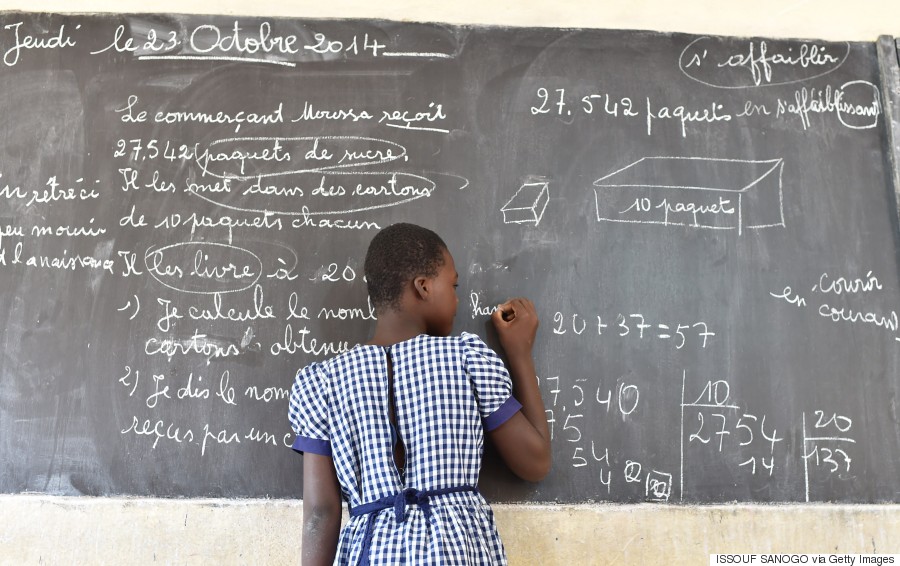 Jeudi le 23 Octobre 2014
Le commerçant Moussa reçoit
27.542 paquets de sucre.
Il les met dans des cartons
de 10 paquets chacun
Il les livre à 20
1) Je calcule le nom
cartons obtenu
2) Je dis le nom
reçus par un c
n rétréci
peu mourir
la naissance
s'affaiblir
27.542 paquets en s'affaiblissant
10 paquets
en courir
courant
han
20 + 37 = 57
7.540
5
54
4
10
2754
14
20
137
ISSOUF SANOGO via Getty Images